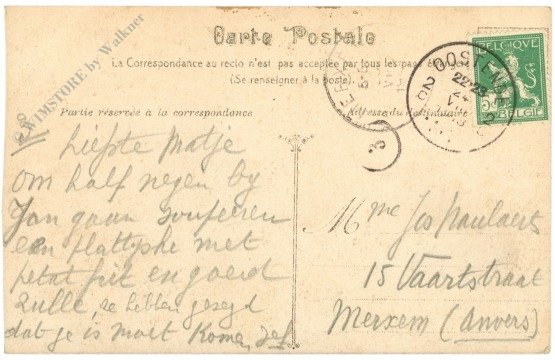 Carte Postale
La Correspondance au recto n'est pas acceptée par tous les pays étrangers
(Se renseigner à la poste).
Partie réservée à la correspondance
Adresse du destinataire
SWIMSTORE by Walkner
OOSTENDE
22-23
BELGIQUE
5
BELGIË
3
Liefste Matje
om half negen by
Jan gaan souperen
een plattyshe met
petat frit en goed
Zulle, ze hebben gezegd
dat je is moet Komen, Jef
Mme Jos Paulaert
15 Vaartstraat
Merxem (Anvers)